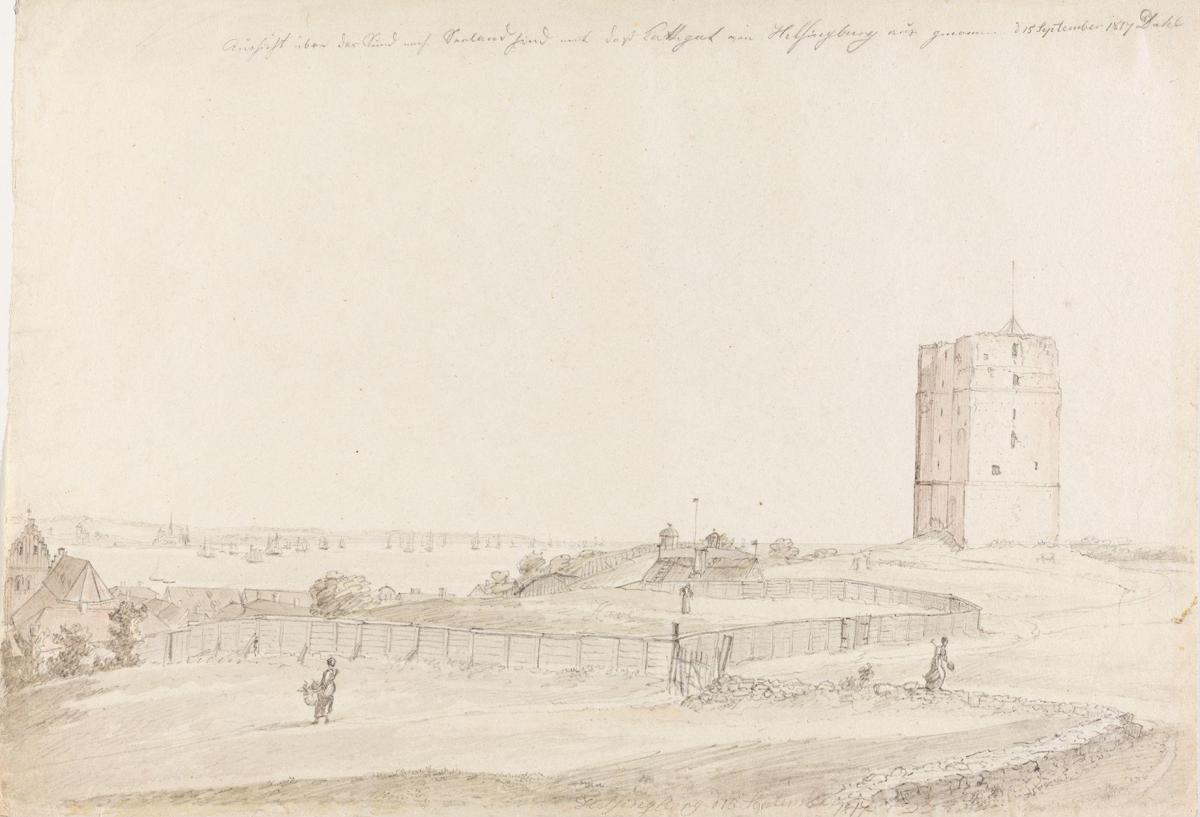 Aussicht über das Sund nach Seeland und daß Cattegat von Helsingburg aus genomen d 15 September 1817 Dahl
Helsingborg d 15 September 1817